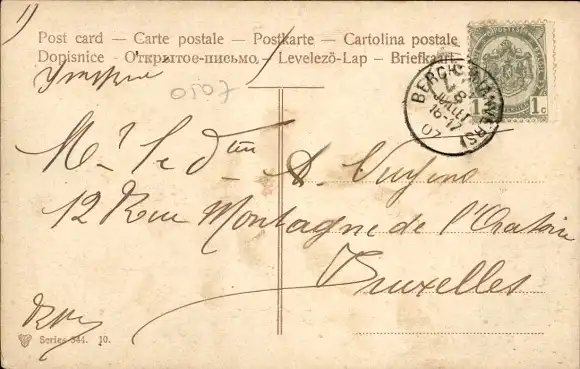 Post card — Carte postale — Postkarte — Cartolina postale
Dopisnice - Открытое-письмо - Levelező-Lap - Briefkaart
0507
BERCHEM (ANVERS)
8
JUILLET
16-17
07
1c
Mr
A. Nuyens
12 Rue Montagne de l'Oratoire
Bruxelles
Series 344. 10.